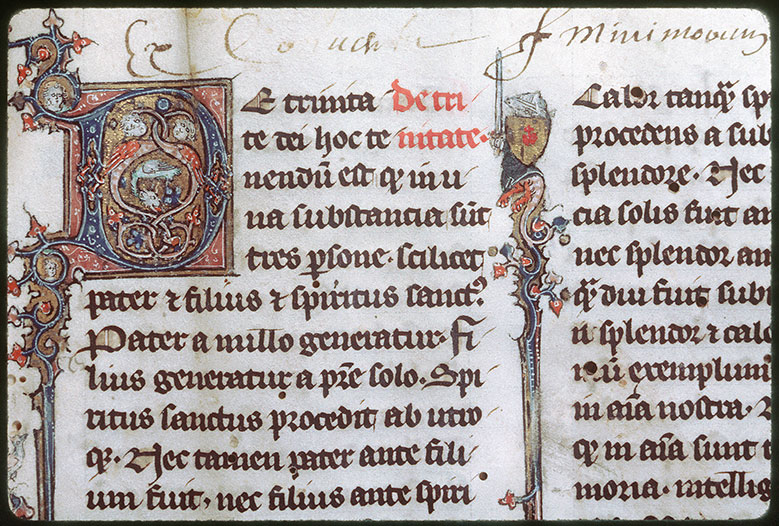 Ex Minimorum
De trinita De tri
te dei hoc te nitate.
nendū est qꝫ in u
na substancia sūt
tres ꝑsone. scilicet
pater ⁊ filius ⁊ spiritus sanctꝰ
Pater a nullo generatur. Fi
lius generatur a pr̄e solo. Spi
ritus sanctus procedit ab utro
qꝫ. Nec tamen pater ante fili
um fuit, nec filius ante spiri
Calor tanqꝫ sp
procedens a sub
splendore. Nec
cia solis fuit an
nec splendor an
qꝫ diu fuit sub
it splendor ⁊ calo
exemplum
in aīa nostra.
qꝫ in aīa sunt t
moria. intellig